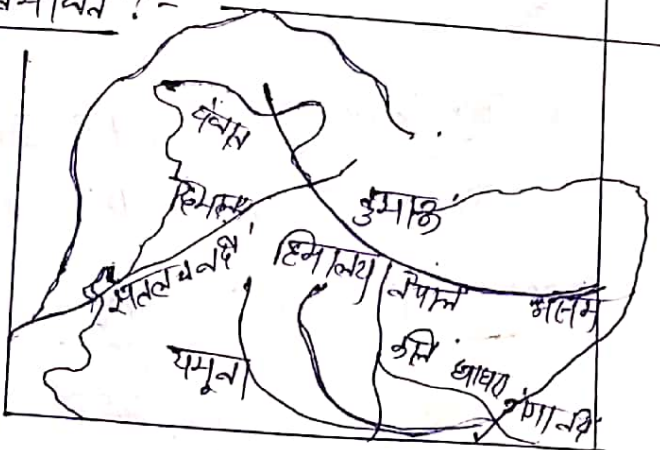 पंजाब
हिमालय
कुमाऊं
सतलज नदी
हिमालय
नेपाल
असम
यमुना
काली
घाघरा
गंगा नदी